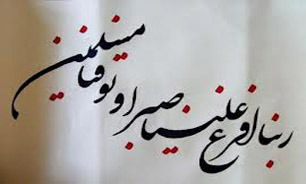 ربنا افرغ علینا صبرا و توفنا مسلمین